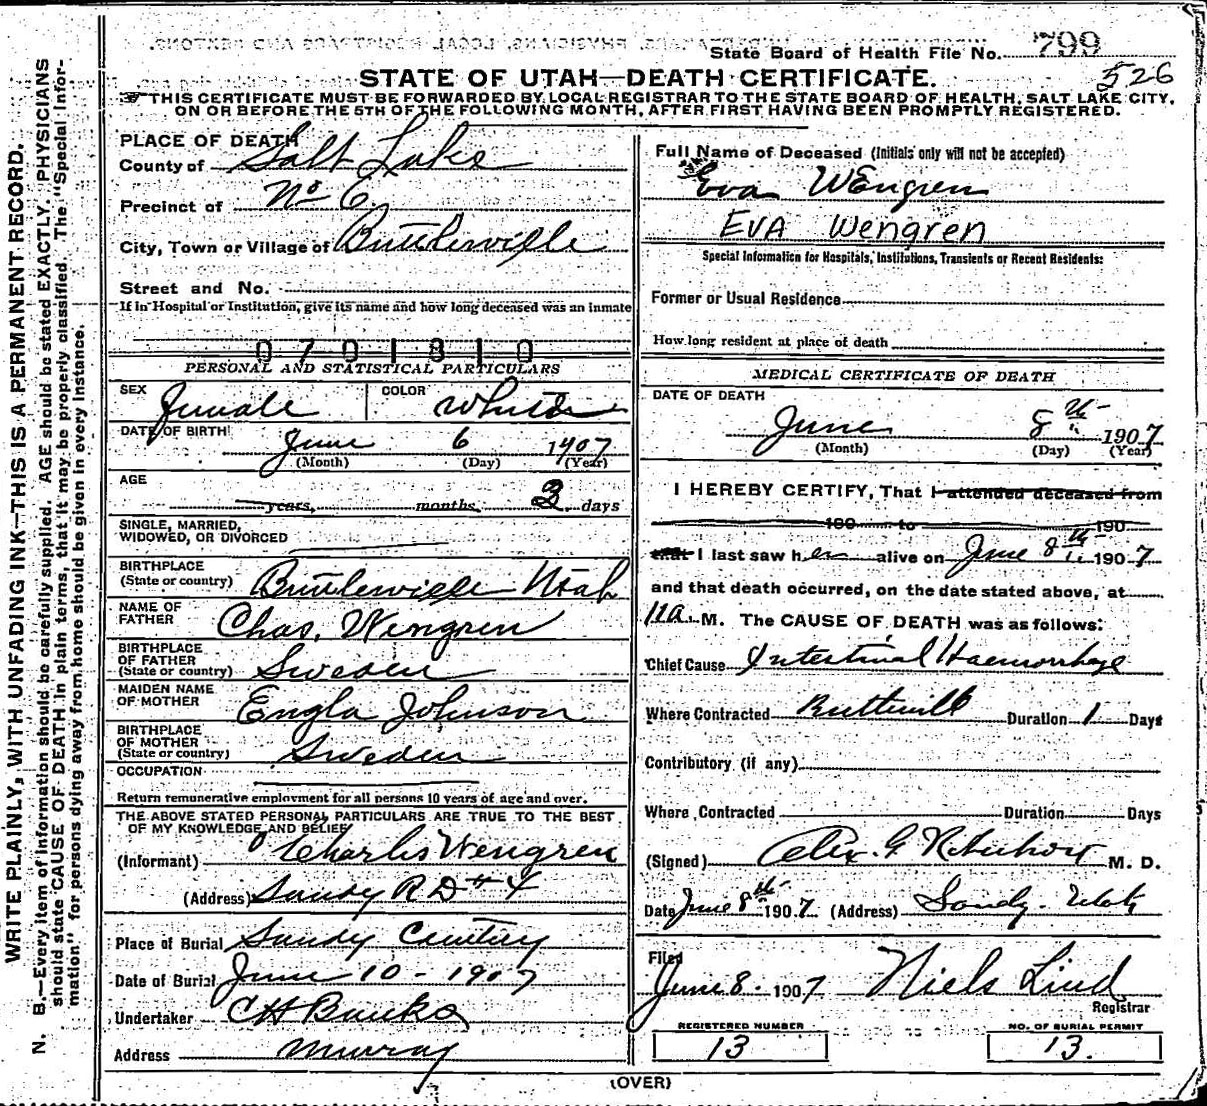 State Board of Health File No. 799
526
STATE OF UTAH—DEATH CERTIFICATE.
THIS CERTIFICATE MUST BE FORWARDED BY LOCAL REGISTRAR TO THE STATE BOARD OF HEALTH, SALT LAKE CITY,
ON OR BEFORE THE 5TH OF THE FOLLOWING MONTH, AFTER FIRST HAVING BEEN PROMPTLY REGISTERED.
WRITE PLAINLY, WITH UNFADING INK—THIS IS A PERMANENT RECORD.
N. B.—Every item of information should be carefully supplied. AGE should be stated EXACTLY. PHYSICIANS
should state CAUSE OF DEATH in plain terms, that it may be properly classified. The "Special Infor-
mation" for persons dying away from home should be given in every instance.
PLACE OF DEATH
County of Salt Lake
Precinct of No 6
City, Town or Village of Buttlerville
Street and No.
If in Hospital or Institution, give its name and how long deceased was an inmate
0701810
PERSONAL AND STATISTICAL PARTICULARS
SEX Female COLOR White
DATE OF BIRTH June 6 1907
(Month) (Day) (Year)
AGE
years, months, 3 days
SINGLE, MARRIED,
WIDOWED, OR DIVORCED
BIRTHPLACE
(State or country) Buttlerville Utah
NAME OF
FATHER Chas. Wengren
BIRTHPLACE
OF FATHER
(State or country) Sweden
MAIDEN NAME
OF MOTHER Engla Johnson
BIRTHPLACE
OF MOTHER
(State or country) Sweden
OCCUPATION
Return remunerative employment for all persons 10 years of age and over.
THE ABOVE STATED PERSONAL PARTICULARS ARE TRUE TO THE BEST
OF MY KNOWLEDGE AND BELIEF
(Informant) Charles Wengren
(Address) Sandy R D # 4
Place of Burial Sandy Cemetery
Date of Burial June 10 - 1907
Undertaker C H Banks
Address Murray
Full Name of Deceased (Initials only will not be accepted)
Eva Wengren
EVA Wengren
Special Information for Hospitals, Institutions, Transients or Recent Residents:
Former or Usual Residence
How long resident at place of death
MEDICAL CERTIFICATE OF DEATH
DATE OF DEATH
June 8th 1907
(Month) (Day) (Year)
I HEREBY CERTIFY, That I attended deceased from
190 to 190
that I last saw her alive on June 8th 1907
and that death occurred, on the date stated above, at
11 a. M. The CAUSE OF DEATH was as follows:
Chief Cause Intestinal Haemorrhage
Where Contracted Duration 1 Days
Contributory (if any)
Where Contracted Duration Days
(Signed) Alex. G. M. D.
Date June 8th 1907 (Address) Sandy. Utah
Filed
June 8. 1907 Niels Lind
Registrar
REGISTERED NUMBER NO. OF BURIAL PERMIT
13 13.
(OVER)